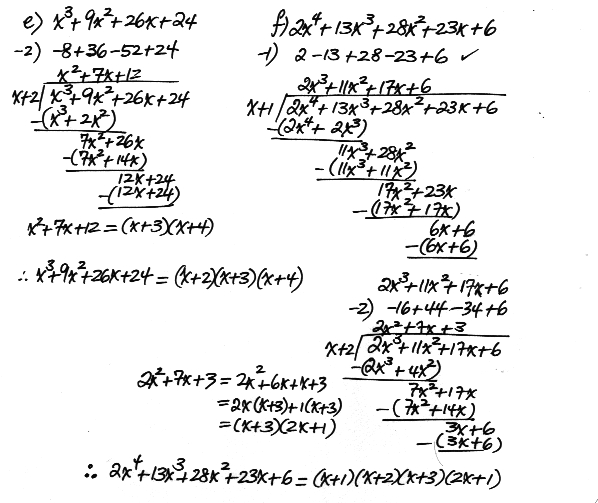 e) x³+9x²+26x+24
-2) -8+36-52+24
x²+7x+12
x+2/x³+9x²+26x+24
-(x³+2x²)
7x²+26x
-(7x²+14x)
12x+24
-(12x+24)
x²+7x+12=(x+3)(x+4)
∴ x³+9x²+26x+24=(x+2)(x+3)(x+4)
f) 2x⁴+13x³+28x²+23x+6
-1) 2-13+28-23+6 ✓
2x³+11x²+17x+6
x+1/2x⁴+13x³+28x²+23x+6
-(2x⁴+2x³)
11x³+28x²
-(11x³+11x²)
17x²+23x
-(17x²+17x)
6x+6
-(6x+6)
2x³+11x²+17x+6
-2) -16+44-34+6
2x²+7x+3
x+2/2x³+11x²+17x+6
-(2x³+4x²)
7x²+17x
-(7x²+14x)
3x+6
-(3x+6)
2x²+7x+3=2x²+6x+x+3
=2x(x+3)+1(x+3)
=(x+3)(2x+1)
∴ 2x⁴+13x³+28x²+23x+6=(x+1)(x+2)(x+3)(2x+1)